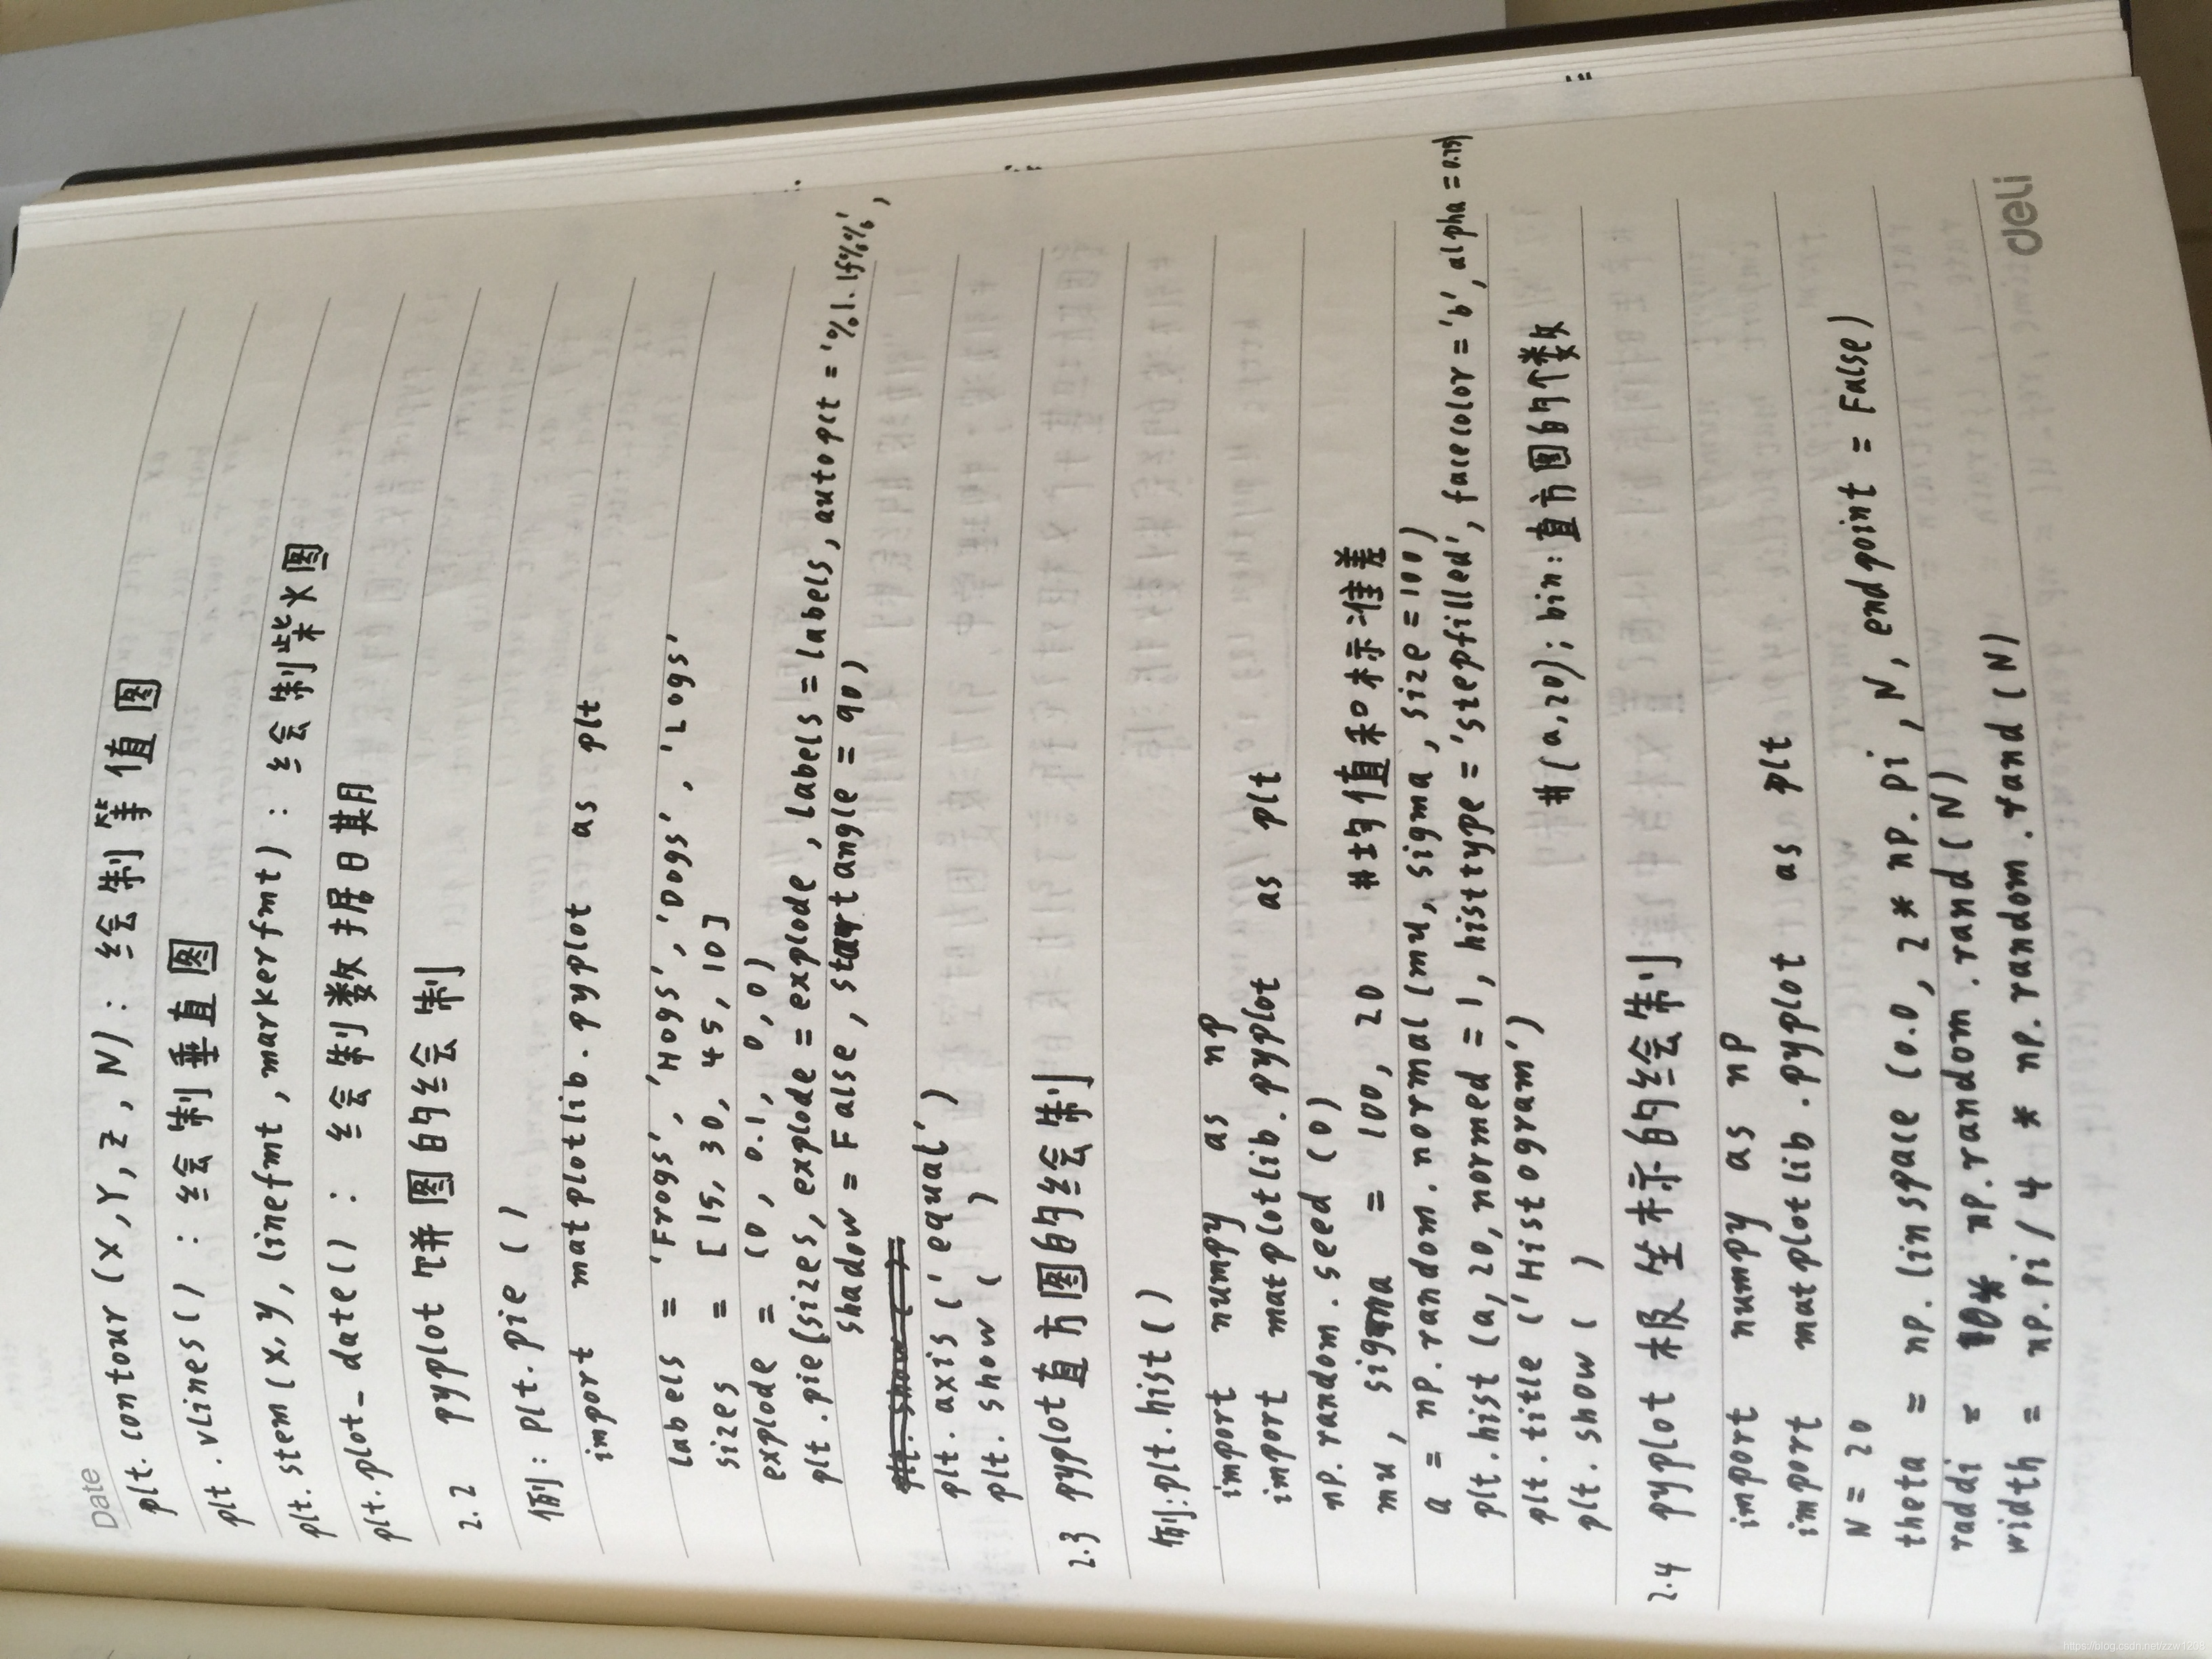 Date
plt.contour(X,Y,Z,N): 绘制等值图
plt.vlines(): 绘制垂直图
plt.stem(x,y,linefmt,markerfmt): 绘制柴火图
plt.plot_date(): 绘制数据日期
2.2 pyplot饼图的绘制
例: plt.pie()
import matplotlib.pyplot as plt
labels = 'Frogs','Hogs','Dogs','Logs'
sizes = [15, 30, 45, 10]
explode = (0, 0.1, 0, 0)
plt.pie(sizes, explode=explode, labels=labels, autopct='%1.1f%%',
shadow=False, startangle=90)
plt.axis('equal')
plt.show()
2.3 pyplot直方图的绘制
例:plt.hist()
import numpy as np
import matplotlib.pyplot as plt
np.random.seed(0)
mu, sigma = 100, 20 #均值和标准差
a = np.random.normal(mu, sigma, size=100)
plt.hist(a,20,normed=1,histtype='stepfilled',facecolor='b',alpha=0.75)
plt.title('Histogram') #(a,20); bin:直方图的个数
plt.show()
2.4 pyplot极坐标的绘制
import numpy as np
import matplotlib.pyplot as plt
N = 20
theta = np.linspace(0.0, 2*np.pi, N, endpoint=False)
raddi = 10* np.random.rand(N)
width = np.pi/4 * np.random.rand(N)
deli
https://blog.csdn.net/zzw1208